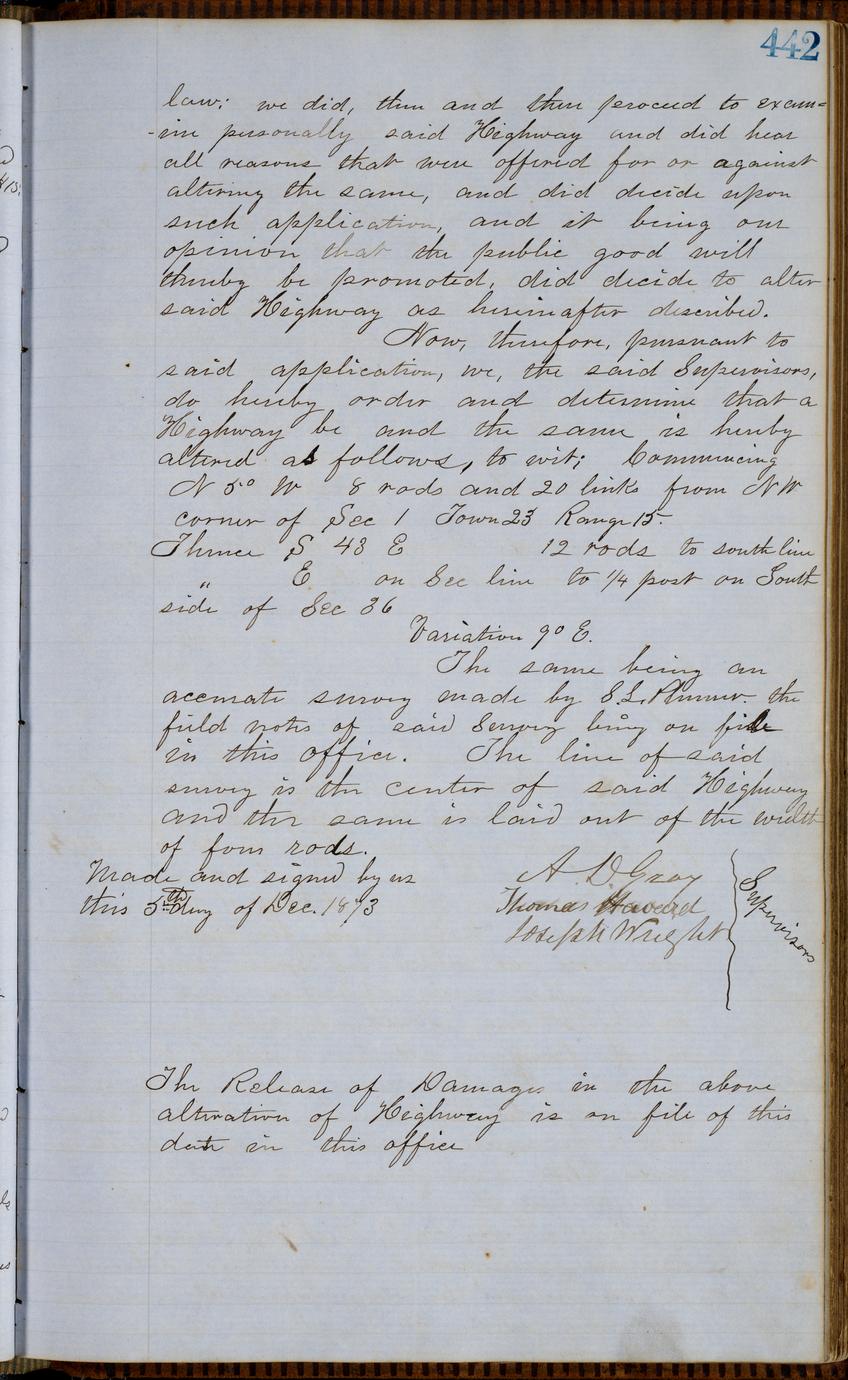 442
law; we did, then and there proceed to exam=
-ine personally said Highway and did hear
all reasons that were offered for or against
altering the same, and did decide upon
such application, and it being our
opinion that the public good will
thereby be promoted, did decide to alter
said Highway as hereinafter described.
Now, therefore, pursuant to
said application, we, the said Supervisors,
do hereby order and determine that a
Highway be and the same is hereby
altered as follows, to wit; Commencing
N 5° W 8 rods and 20 links from NW
corner of Sec 1 Town 23 Range 15.
Thence S 43 E 12 rods to south line
" E on Sec line to 1/4 post on South
side of Sec 36
Variation 9° E.
The same being an
accurate survey made by S.L. Plumer. the
field notes of said Survey being on file
in this office. The line of said
survey is the center of said Highway
and the same is laid out of the width
of four rods.
Made and signed by us
this 5th day of Dec. 1873
A D Gray
Thomas Havard
Joseph Wright
Supervisors
The Release of Damages in the above
alteration of Highway is on file of this
date in this office